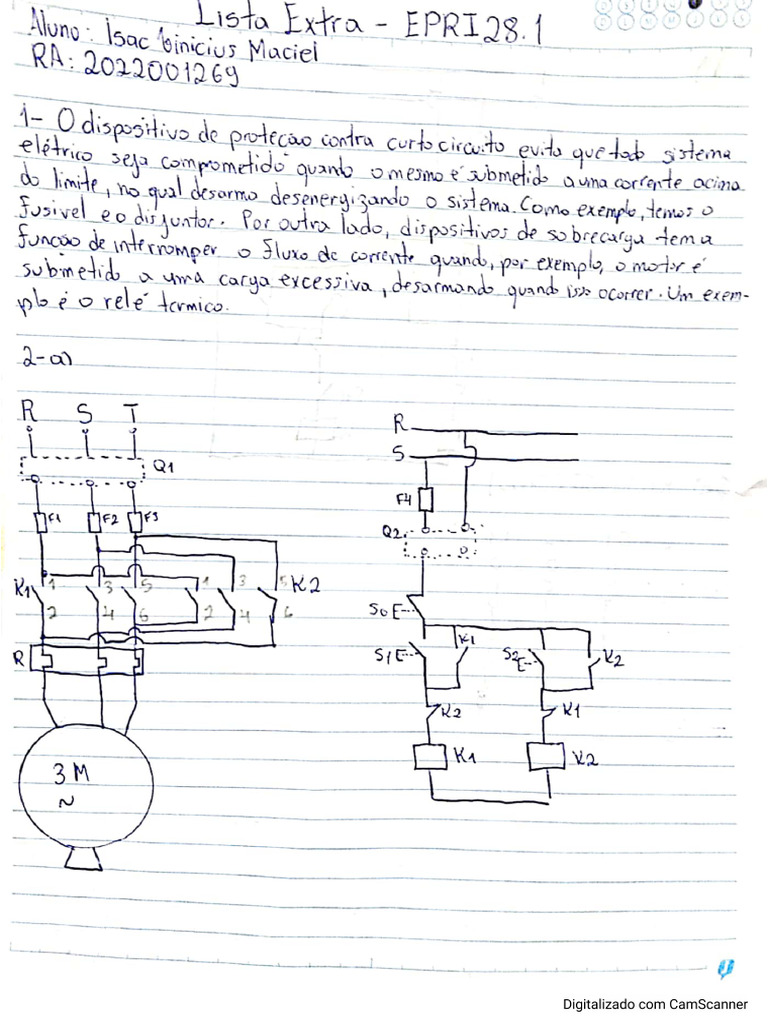 Lista Extra - EPRI28.1
Aluno: Isac Vinicius Maciel
RA: 2022001269
1- O dispositivo de proteção contra curto circuito evita que todo sistema
elétrico seja comprometido quando o mesmo é submetido a uma corrente acima
do limite, no qual desarma desenergizando o sistema. Como exemplo, temos o
fusivel e o disjuntor. Por outro lado, dispositivos de sobrecarga tem a
função de interromper o fluxo de corrente quando, por exemplo, o motor é
submetido a uma carga excessiva, desarmando quando isso ocorrer. Um exem-
plo é o relé térmico.
2-a)
R S T
Q1
F1 F2 F3
K1 1 3 5 1 3 5 K2
2 4 6 2 4 6
R
3 M
~
R
S
F4
Q2
S0 E
S1 E K1 S2 E K2
K2 K1
K1 K2
Digitalizado com CamScanner